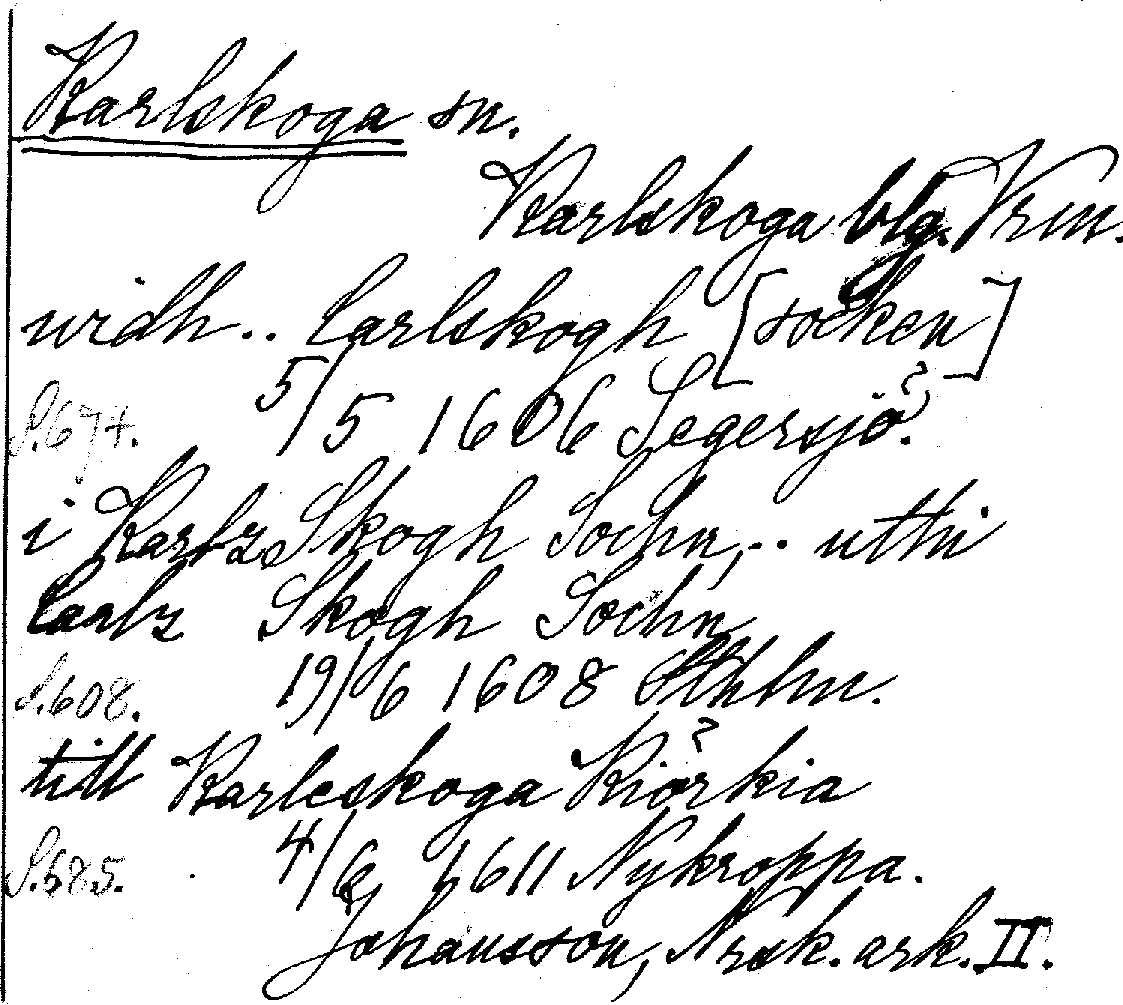 Karlskoga sn.
Karlskoga blg. Vrm.
widh.. Carlskogh [socken]
S.674. 5/5 1606 Segersjö.
i Karlz Skogh Sochn,.. uthi
Carlz Skogh Sochn,
S.608. 19/6 1608 Sthlm.
till Karleskoga Kiörkia
S.685. 4/6 1611 Nykroppa.
Johansson, Norsk. ark. II.